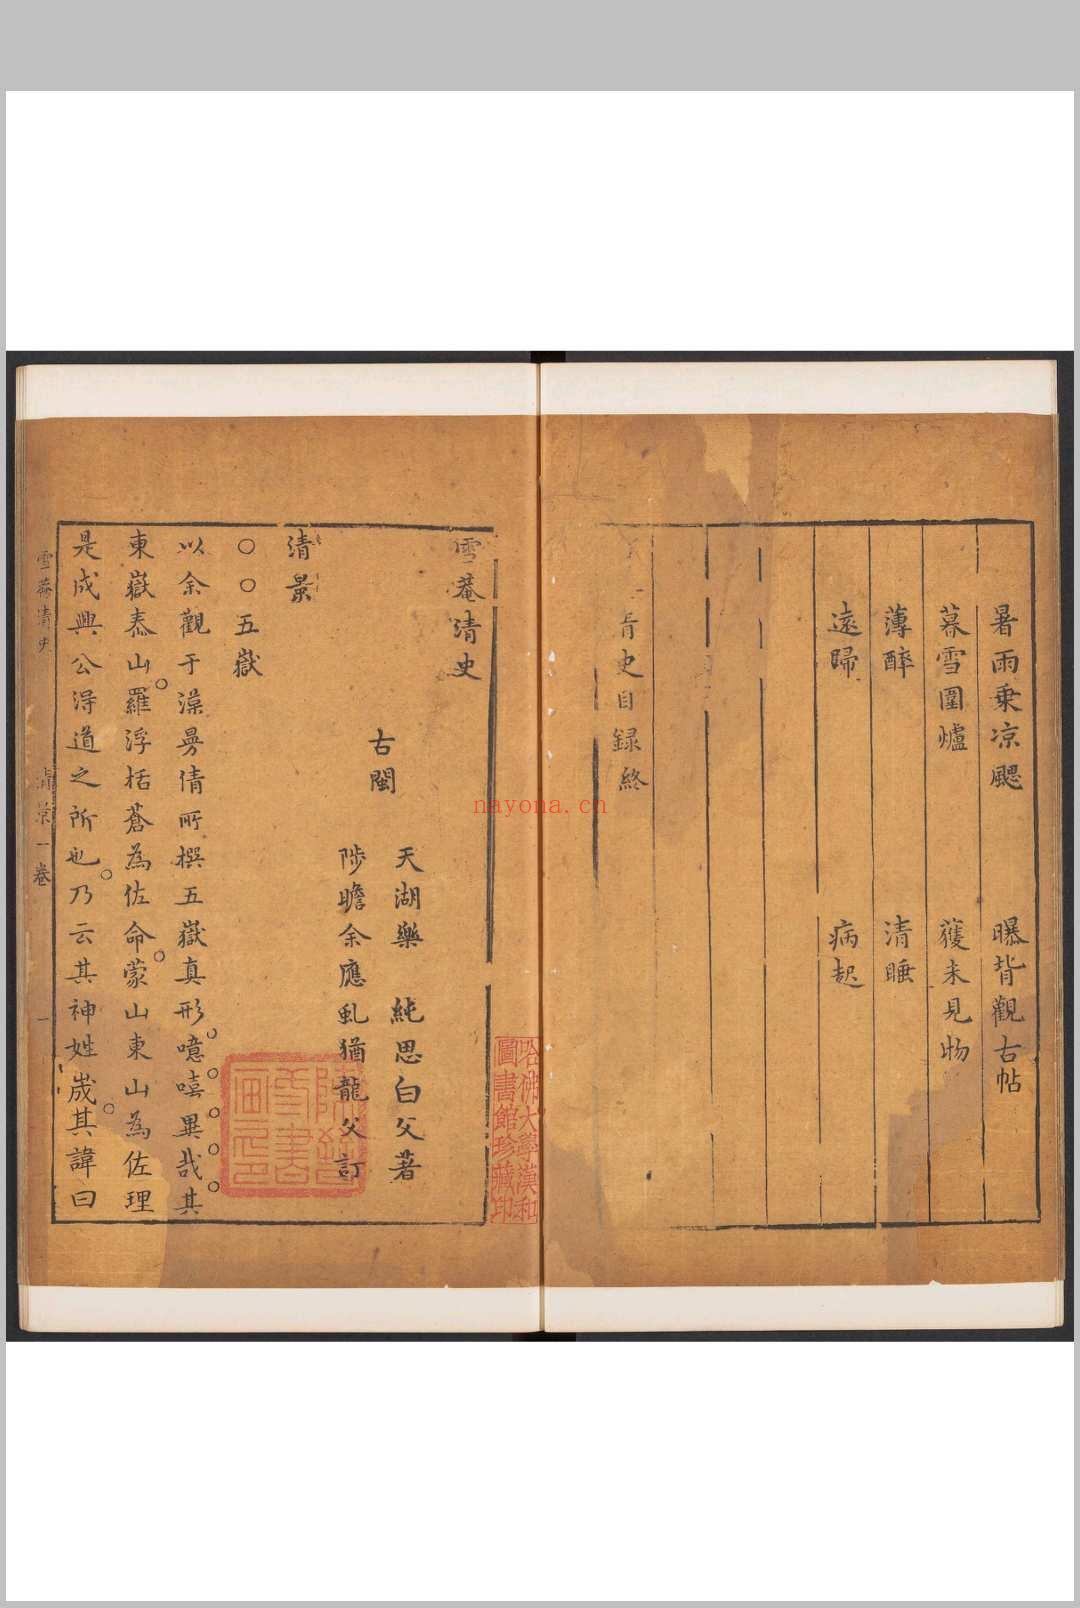 暑雨乘凉颸 曝背觀古帖
暮雪圍爐 獲未見物
薄醉 清睡
遠歸 病起
史目録終
哈佛大學漢和
圖書館珍藏印
雪菴清史
古閩
天湖樂 純思白父著
陟瞻余應虬猶龍父訂
清景
○○五嶽
以余觀于澡曼倩所撰五嶽真形噫嘻異哉其
東嶽泰山羅浮括蒼為佐命蒙山東山為佐理
是成興公淂道之所也乃云其神姓歲其諱曰
雪菴清史 清景一卷 一
nayona.cn